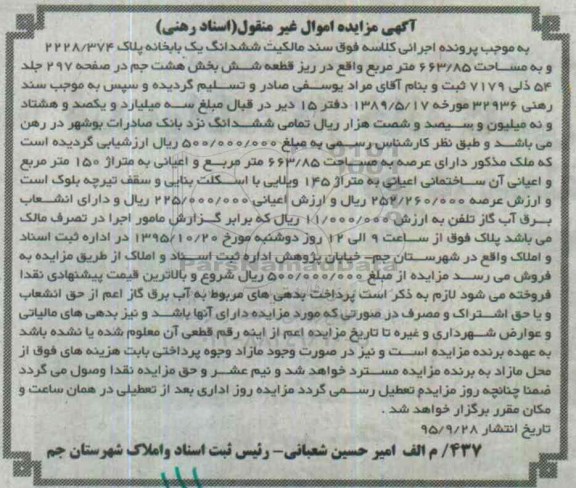 آگهی مزایده اموال غیر منقول(اسناد رهنی)
به موجب پرونده اجرائی کلاسه فوق سند مالکیت ششدانگ یک بابخانه پلاک ۲۲۲۸/۳۷۴
و به مساحت ۶۶۳/۸۵ متر مربع واقع در ریز قطعه شش بخش هشت جم در صفحه ۲۹۷ جلد
۵۴ ذلی ۷۱۷۹ ثبت و بنام آقای مراد یوسفی صادر و تسلیم گردیده و سپس به موجب سند
رهنی ۳۲۹۳۶ مورخه ۱۳۸۹/۵/۱۷ دفتر ۱۵ دیر در قبال مبلغ سه میلیارد و یکصد و هشتاد
و نه میلیون و سیصد و شصت هزار ریال تمامی ششدانگ نزد بانک صادرات بوشهر در رهن
می باشد و طبق نظر کارشناس رسمی به مبلغ ۵۰۰/۰۰۰/۰۰۰ ریال ارزشیابی گردیده است
که ملک مذکور دارای عرصه به مساحت ۶۶۳/۸۵ متر مربع و اعیانی به متراژ ۱۵۰ متر مربع
و اعیانی آن ساختمانی اعیانی به متراژ ۱۴۵ ویلایی با اسکلت بنایی و سقف تیرچه بلوک است
و ارزش عرصه ۲۵۲/۲۶۰/۰۰۰ ریال و ارزش اعیانی ۲۲۵/۰۰۰/۰۰۰ ریال و دارای انشعاب
برق آب گاز تلفن به ارزش ۱۱/۰۰۰/۰۰۰ ریال که برابر گزارش مامور اجرا در تصرف مالک
می باشد پلاک فوق از ساعت ۹ الی ۱۲ روز دوشنبه مورخ ۱۳۹۵/۱۰/۲۰ در اداره ثبت اسناد
و املاک واقع در شهرستان جم- خیابان پژوهش اداره ثبت اسناد و املاک از طریق مزایده به
فروش می رسد مزایده از مبلغ ۵۰۰/۰۰۰/۰۰۰ ریال شروع و بالاترین قیمت پیشنهادی نقدا
فروخته می شود لازم به ذکر است پرداخت بدهی های مربوط به آب برق گاز اعم از حق انشعاب
و یا حق اشتراک و مصرف در صورتی که مورد مزایده دارای آنها باشد و نیز بدهی های مالیاتی
و عوارض شهرداری و غیره تا تاریخ مزایده اعم از اینه رقم قطعی آن معلوم شده یا نشده باشد
به عهده برنده مزایده است و نیز در صورت وجود مازاد وجوه پرداختی بابت هزینه های فوق از
محل مازاد به برنده مزایده مسترد خواهد شد و نیم عشر و حق مزایده نقدا وصول می گردد
ضمنا چنانچه روز مزایده تعطیل رسمی گردد مزایده روز اداری بعد از تعطیلی در همان ساعت و
مکان مقرر برگزار خواهد شد .
تاریخ انتشار ۹۵/۹/۲۸
۴۳۷/ م الف امیر حسین شعبانی- رئیس ثبت اسناد واملاک شهرستان جم